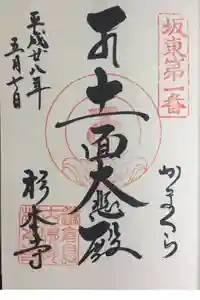 坂東第一番
かまくら
十一面大悲殿
杉本寺
平成廿八年
五月十日